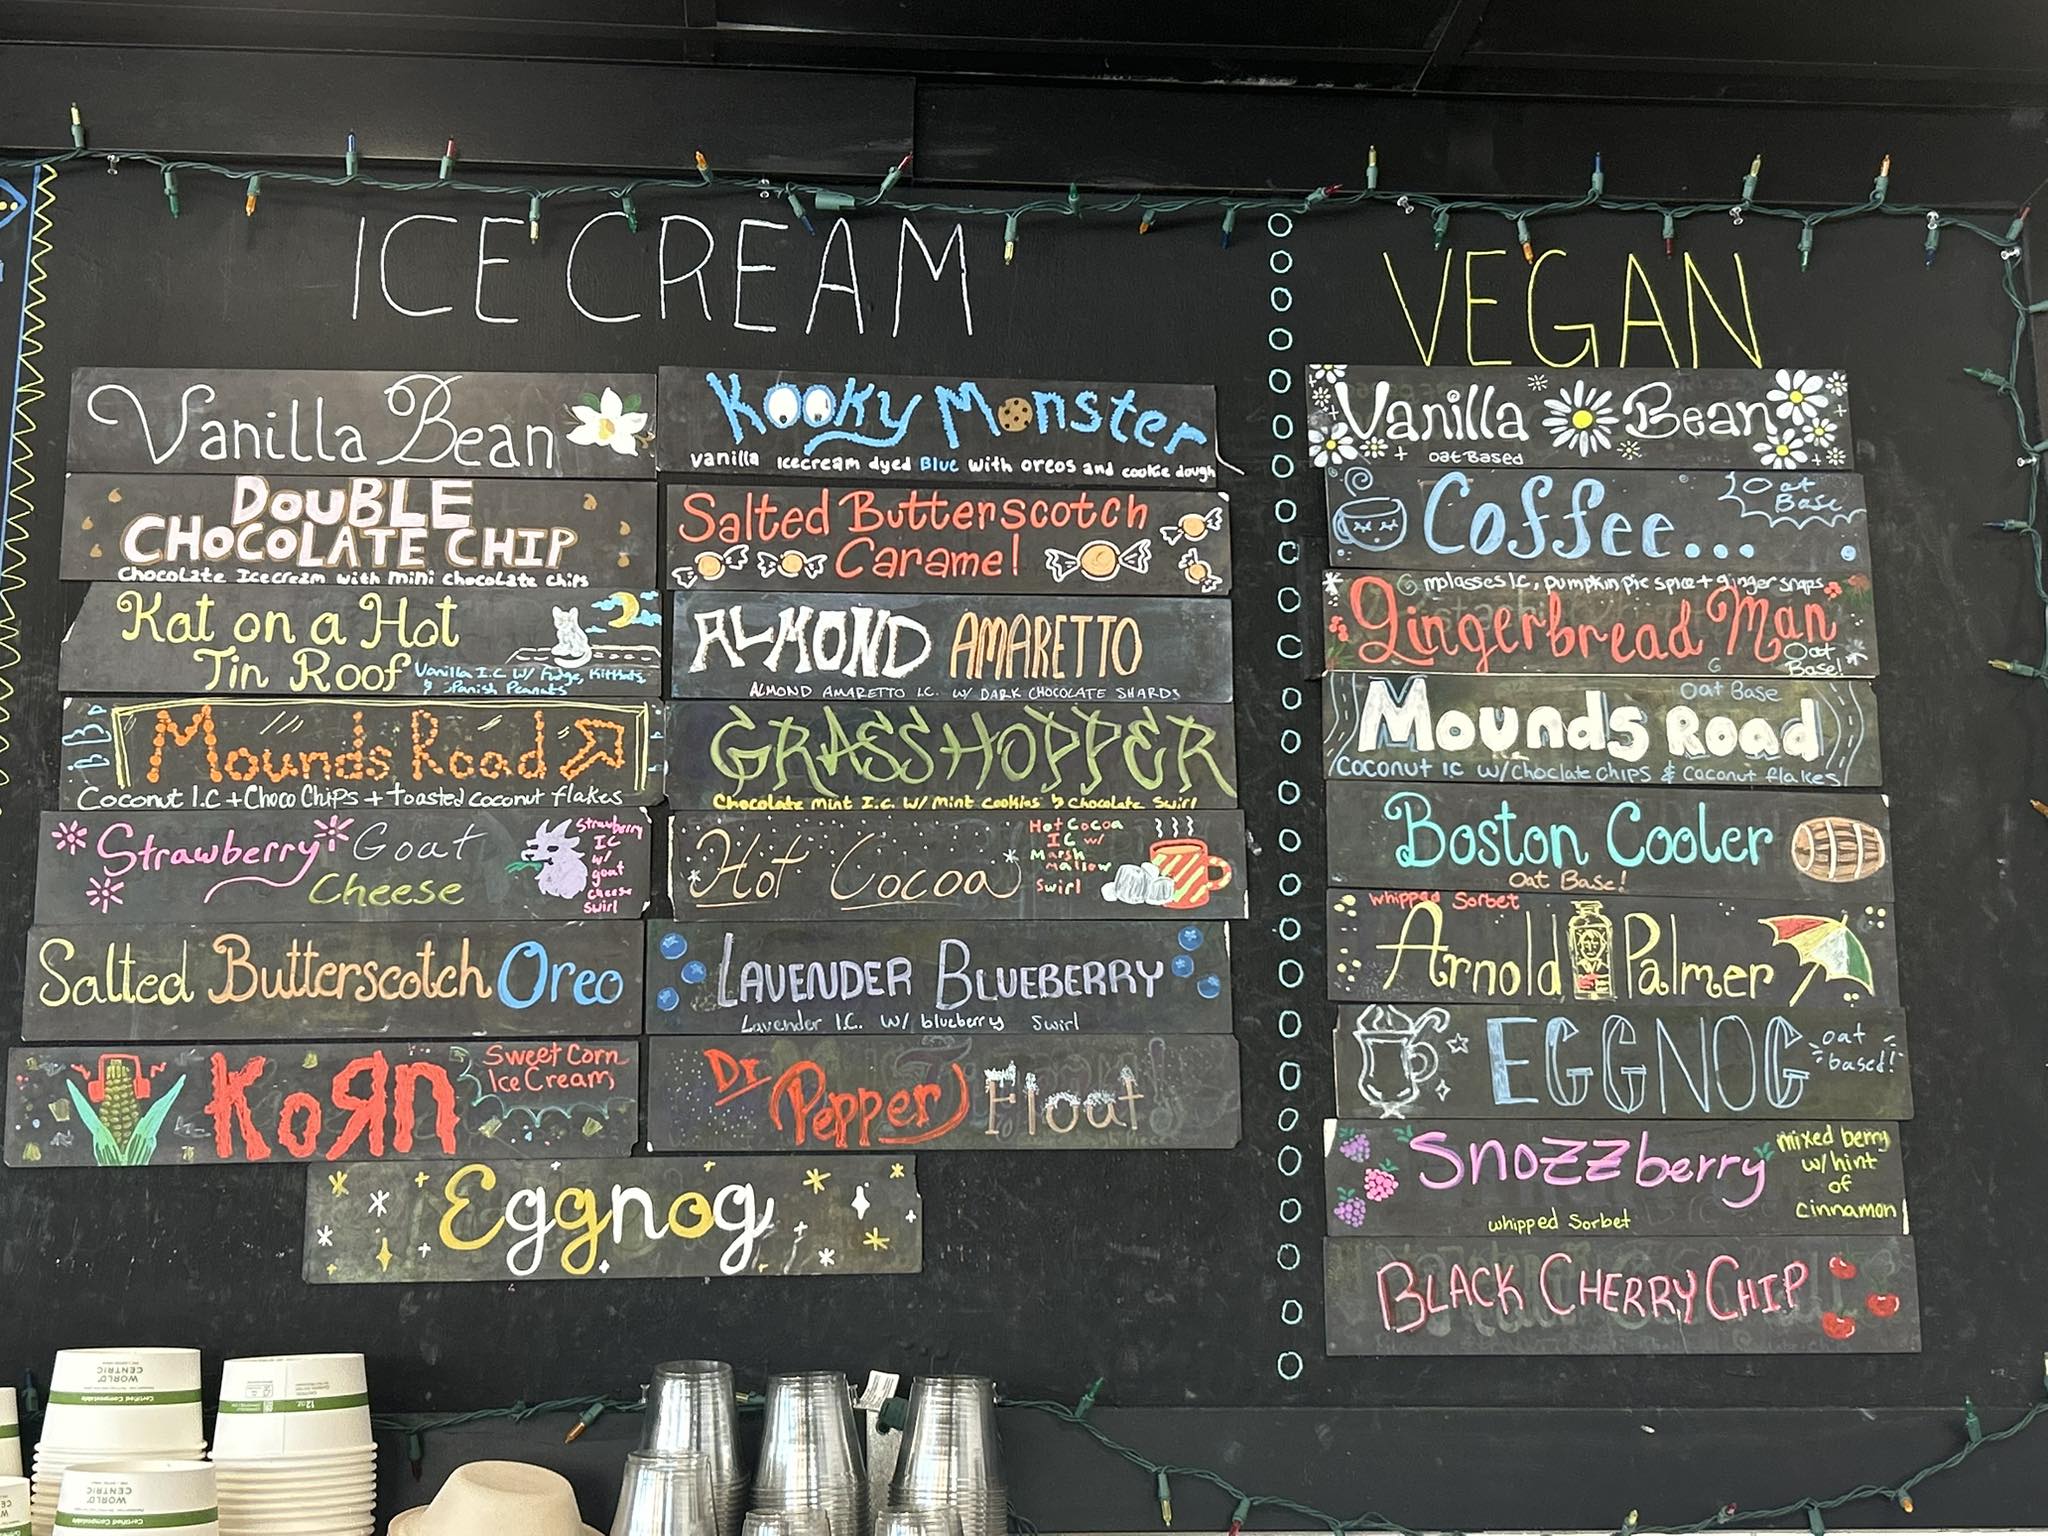 ICE CREAM
Vanilla Bean
DOUBLE
CHOCOLATE CHIP
Chocolate Icecream with mini chocolate chips
Kat on a Hot
Tin Roof
Vanilla I.C W/ Fudge, Kitkats,
& Spanish Peanuts
Mounds Road
Coconut I.C + Choco Chips + toasted coconut flakes
Strawberry Goat
Cheese
Strawberry
IC
w/
goat
cheese
swirl
Salted Butterscotch Oreo
KoЯn
Sweet Corn
Ice Cream
Kooky Monster
vanilla icecream dyed Blue with oreos and cookie dough
Salted Butterscotch
Caramel
ALMOND AMARETTO
ALMOND AMARETTO I.C. W/ DARK CHOCOLATE SHARDS
GRASSHOPPER
Chocolate Mint I.C. W/ Mint Cookies & Chocolate Swirl
Hot Cocoa
Hot Cocoa
IC w/
Marsh
mallow
Swirl
LAVENDER BLUEBERRY
Lavender I.C. w/ blueberry Swirl
Dr Pepper Float
Eggnog
VEGAN
Vanilla Bean
oat Based
Coffee...
Oat
Base
molasses I.C, pumpkin pie spice + ginger snaps
Gingerbread Man
Oat
Base!
Oat Base
Mounds Road
Coconut IC w/Choclate Chips & Coconut flakes
Boston Cooler
Oat Base!
whipped Sorbet
Arnold Palmer
EGGNOG
oat
based!
Snozzberry
mixed berry
w/hint
of
cinnamon
whipped Sorbet
BLACK CHERRY CHIP
WORLD
CENTRIC
Certified Compostable
12oz
WORLD
CENTRIC
Certified Compostable